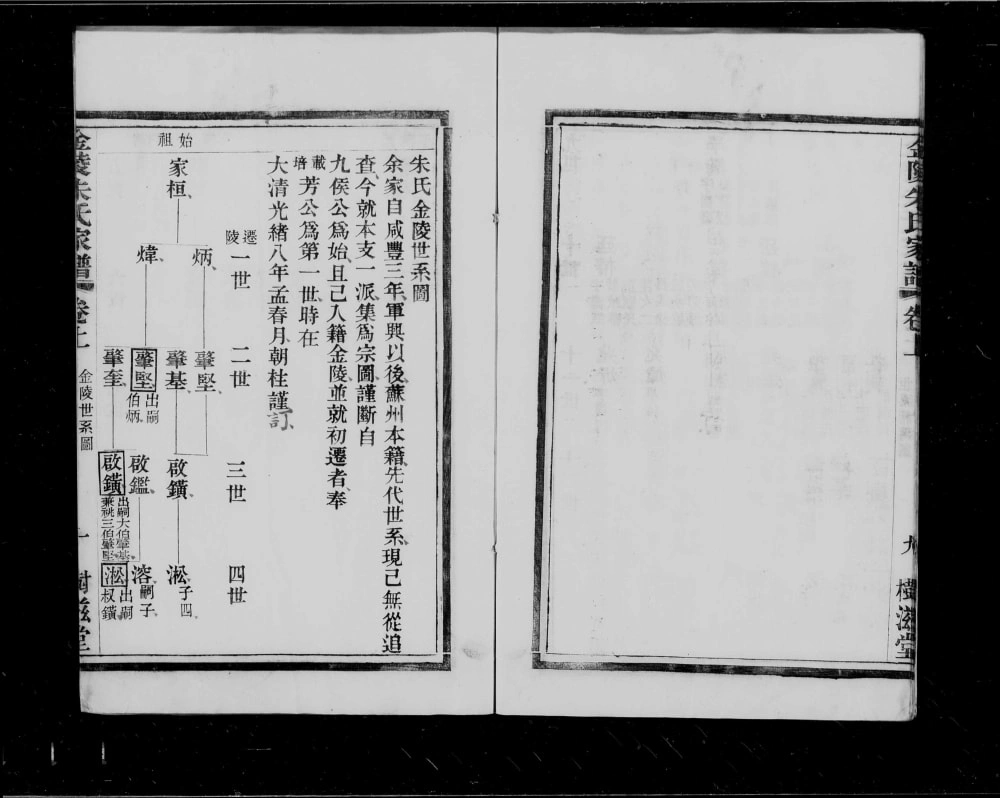 金陵朱氏家譜
卷上
九
樹滋堂
朱氏金陵世系圖
余家自咸豐三年軍興以後蘇州本籍先代世系現已無從追
查今就本支一派集為宗圖謹斷自
九侯公為始且已入籍金陵並就初遷者奉
載培芳公為第一世時在
大清光緒八年孟春月朝柱謹訂
遷陵 一世 二世 三世 四世
始祖
家桓
炳
煒
肇堅
肇基
肇堅 出嗣伯炳
肇奎
啟鐄
啟鑑
啟鐄 出嗣大伯肇基兼祧三伯肇堅
淞 子四
溶 嗣子
淞 出嗣叔鐄
金陵朱氏家譜
卷上
金陵世系圖
一
樹滋堂